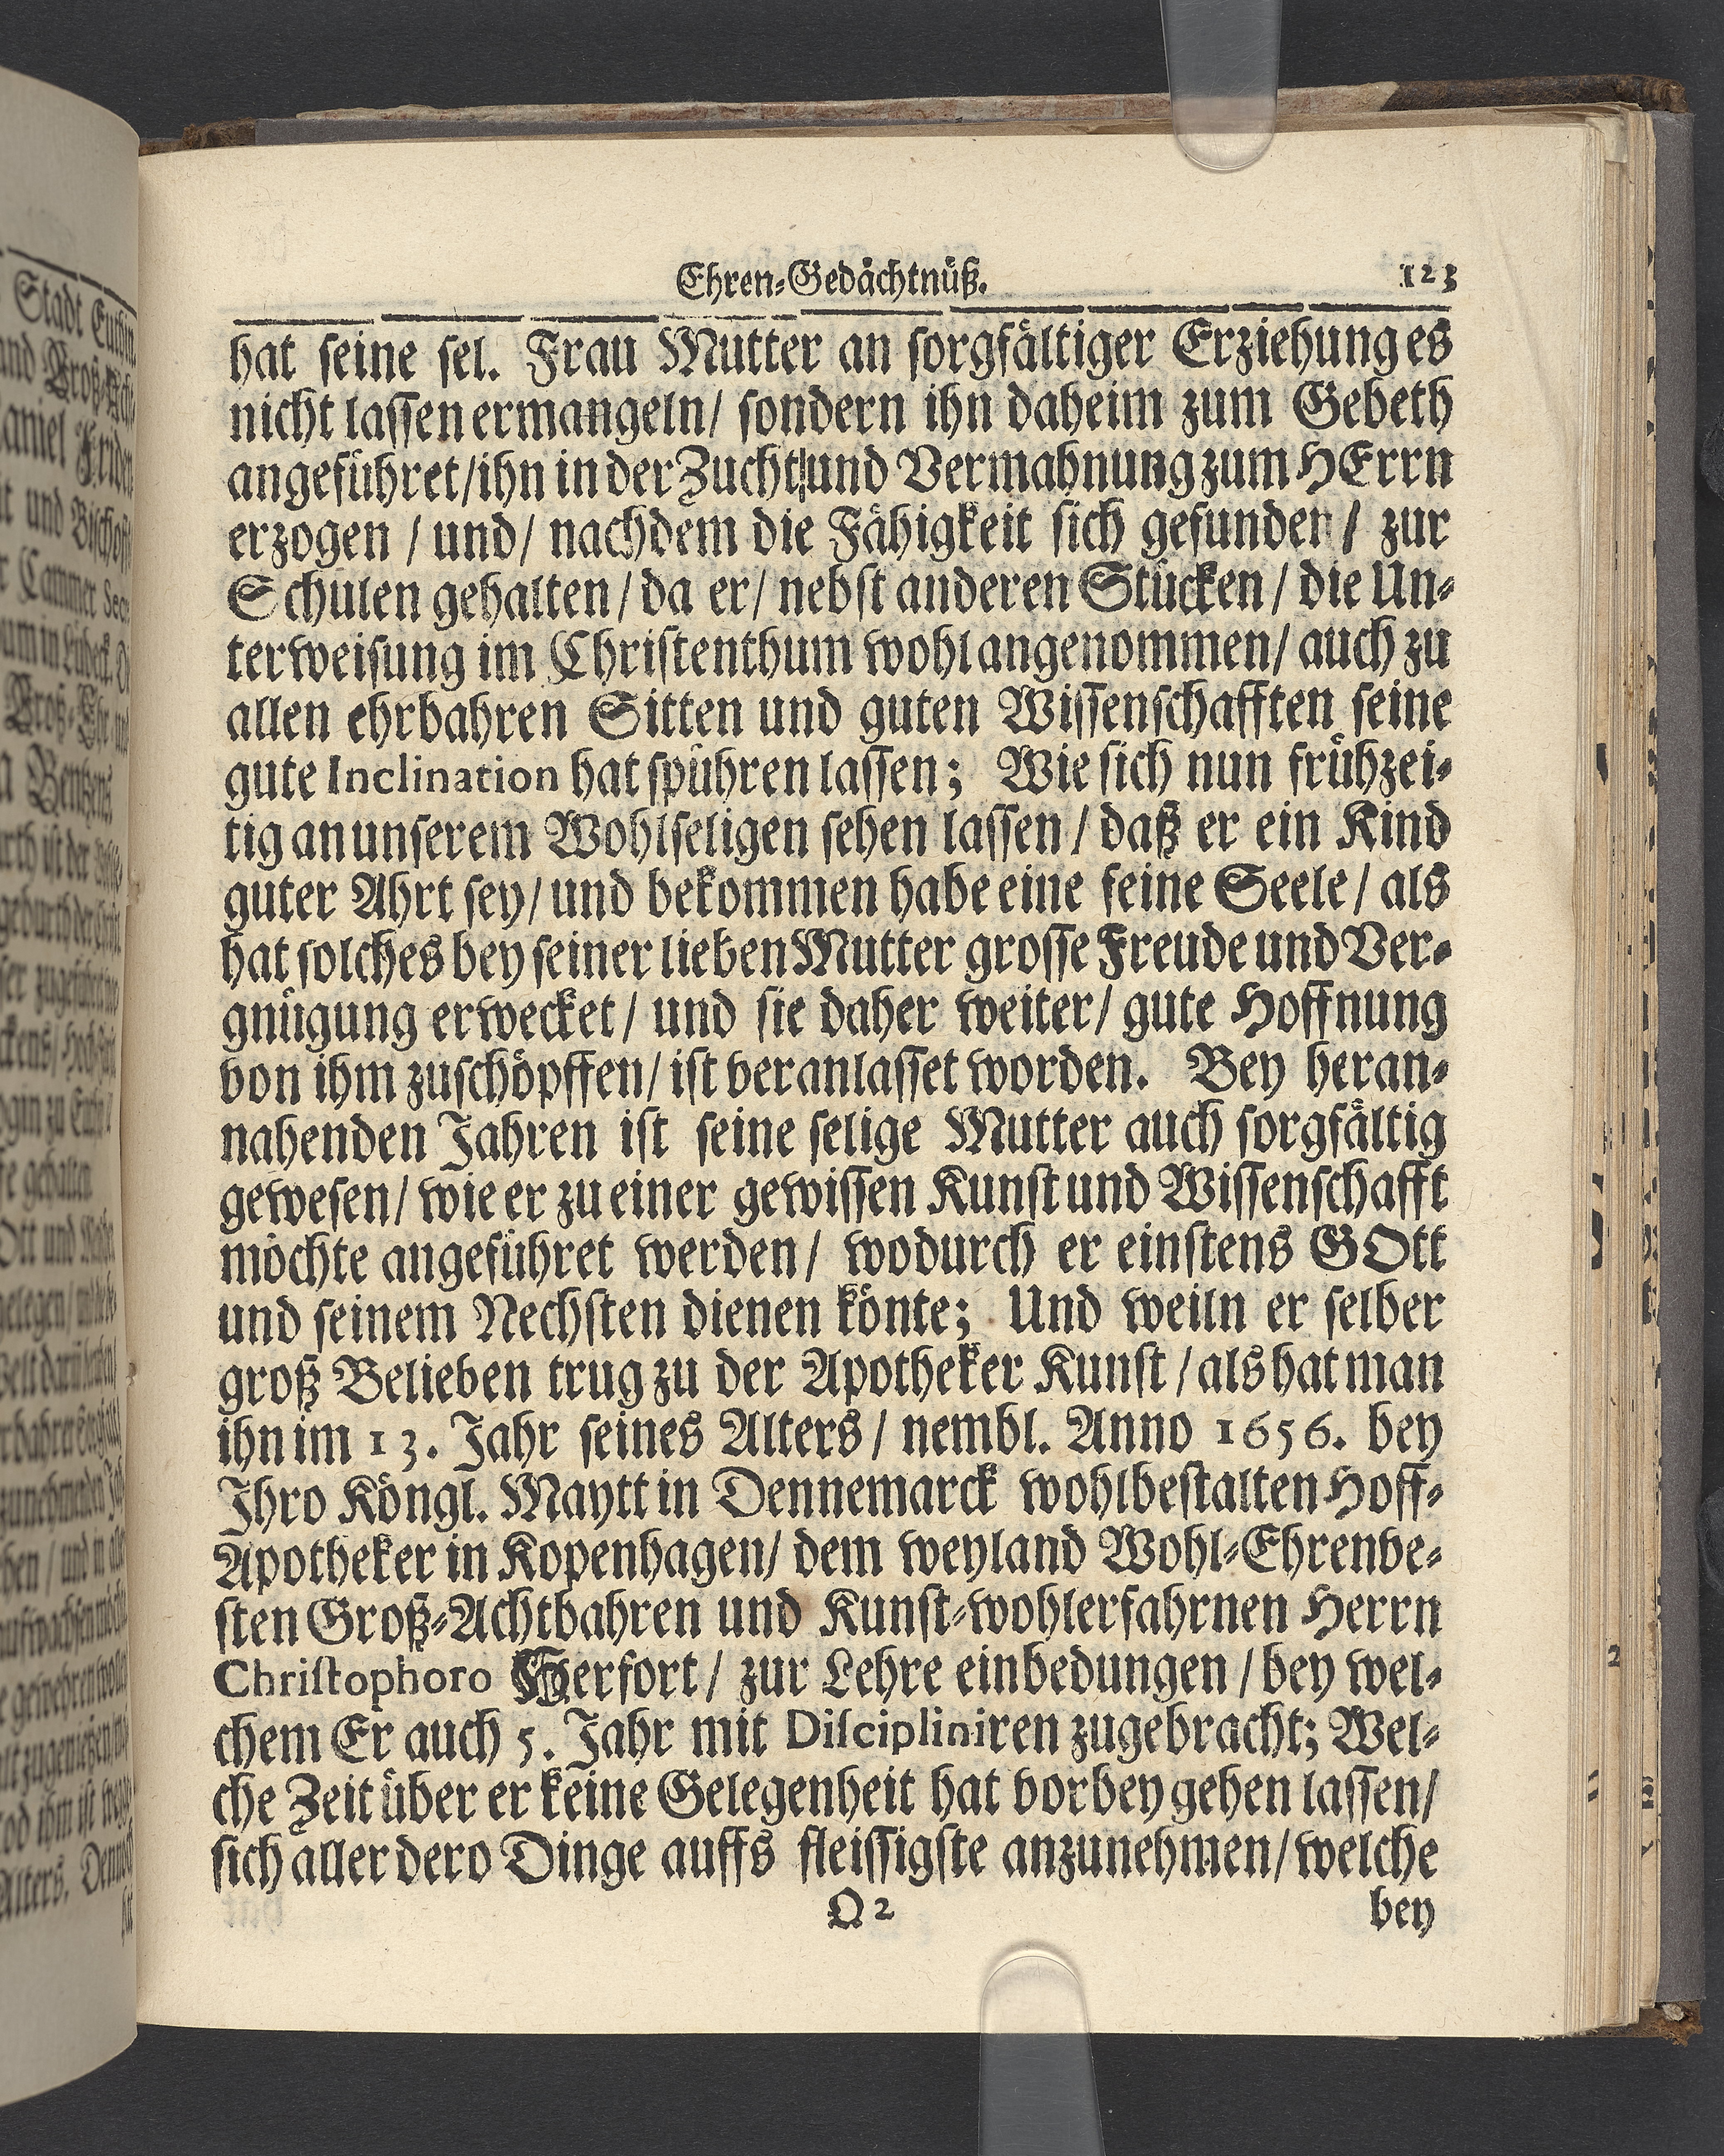 Ehren-Gedächtnüß. 123
hat seine sel. Frau Mutter an sorgfältiger Erziehung es
nicht lassen ermangeln/ sondern ihn daheim zum Gebeth
angeführet/ihn in der Zucht und Vermahnung zum HErrn
erzogen / und/ nachdem die Fähigkeit sich gefunden / zur
Schulen gehalten / da er/ nebst anderen Stücken / die Un-
terweisung im Christenthum wohl angenommen/ auch zu
allen ehrbahren Sitten und guten Wissenschafften seine
gute Inclination hat spühren lassen; Wie sich nun frühzei-
tig an unserem Wohlseligen sehen lassen / daß er ein Kind
guter Ahrt sey/ und bekommen habe eine feine Seele/ als
hat solches bey seiner lieben Mutter grosse Freude und Ver-
gnügung erwecket/ und sie daher weiter/ gute Hoffnung
von ihm zuschöpffen/ ist veranlasset worden. Bey heran-
nahenden Jahren ist seine selige Mutter auch sorgfältig
gewesen/ wie er zu einer gewissen Kunst und Wissenschafft
möchte angeführet werden/ wodurch er einstens GOtt
und seinem Nechsten dienen könte; Und weiln er selber
groß Belieben trug zu der Apotheker Kunst / als hat man
ihn im 13. Jahr seines Alters / nembl. Anno 1656. bey
Ihro Köngl. Maytt in Dennemarck wohlbestalten Hoff-
Apotheker in Kopenhagen/ dem weyland Wohl-Ehrenve-
sten Groß-Achtbahren und Kunst-wohlerfahrnen Herrn
Christophoro Herfort / zur Lehre einbedungen / bey wel-
chem Er auch 5. Jahr mit Discipliniren zugebracht; Wel-
che Zeit über er keine Gelegenheit hat vorbey gehen lassen/
sich aller dero Dinge auffs fleissigste anzunehmen/ welche
Q 2 bey